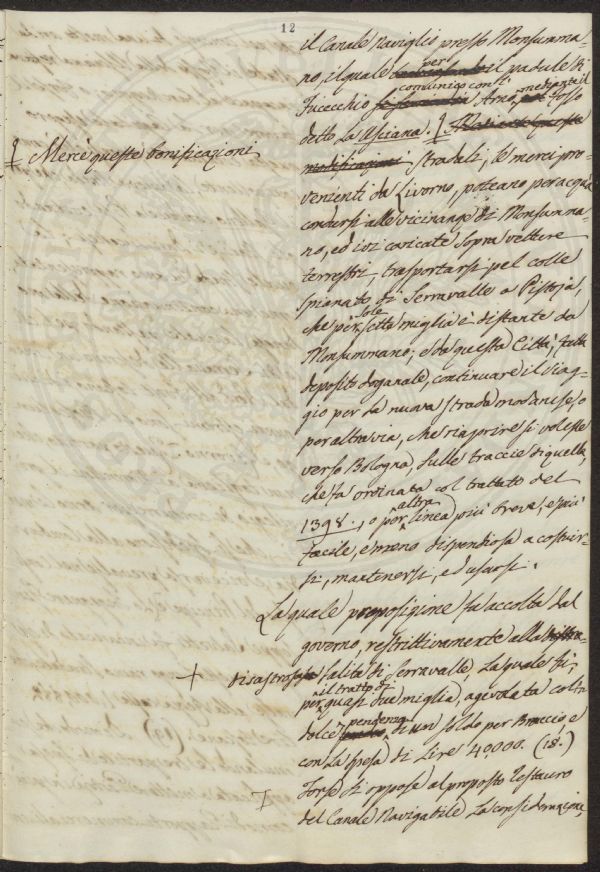 12
il Canale Naviglio presso Monsumma-
no, il quale per il padule di
comunica con l' mediante il
Fucecchio Arno, fosso
detto la Usciana. ¶
¶ Mercè queste bonificazioni
modificazioni stradali, le merci pro-
venienti da Livorno, poteano per acqua
condursi alle vicinanze di Monsumma-
no, ed ivi caricate sopra vetture
terrestri, trasportarsi pel colle
spianato di Serravalle a Pistoja,
che per sole sette miglia è distante da
Monsummano; e da questa Città, fatta
deposito doganale, continuare il viag-
gio per la nuova strada modanese, o
per altra via, che riaprire si volesse
verso Bologna, sulle traccie di quella,
che fu ordinata col trattato del
1398., o per altra linea più breve, e più
facile, e meno dispendiosa a costruir-
si, mantenersi, ed usarsi.
La quale proposizione fu accolta dal
governo, restrittivamente alla
+ disastrosa salita di Serravalle, la quale fu,
per il tratto di quasi due miglia, agevolata colla
dolce pendenza di un soldo per Braccio e
con la spesa di Lire 40,000. (18.)
Forse si oppose al proposto restauro
del Canale Navigabile la considerazione,